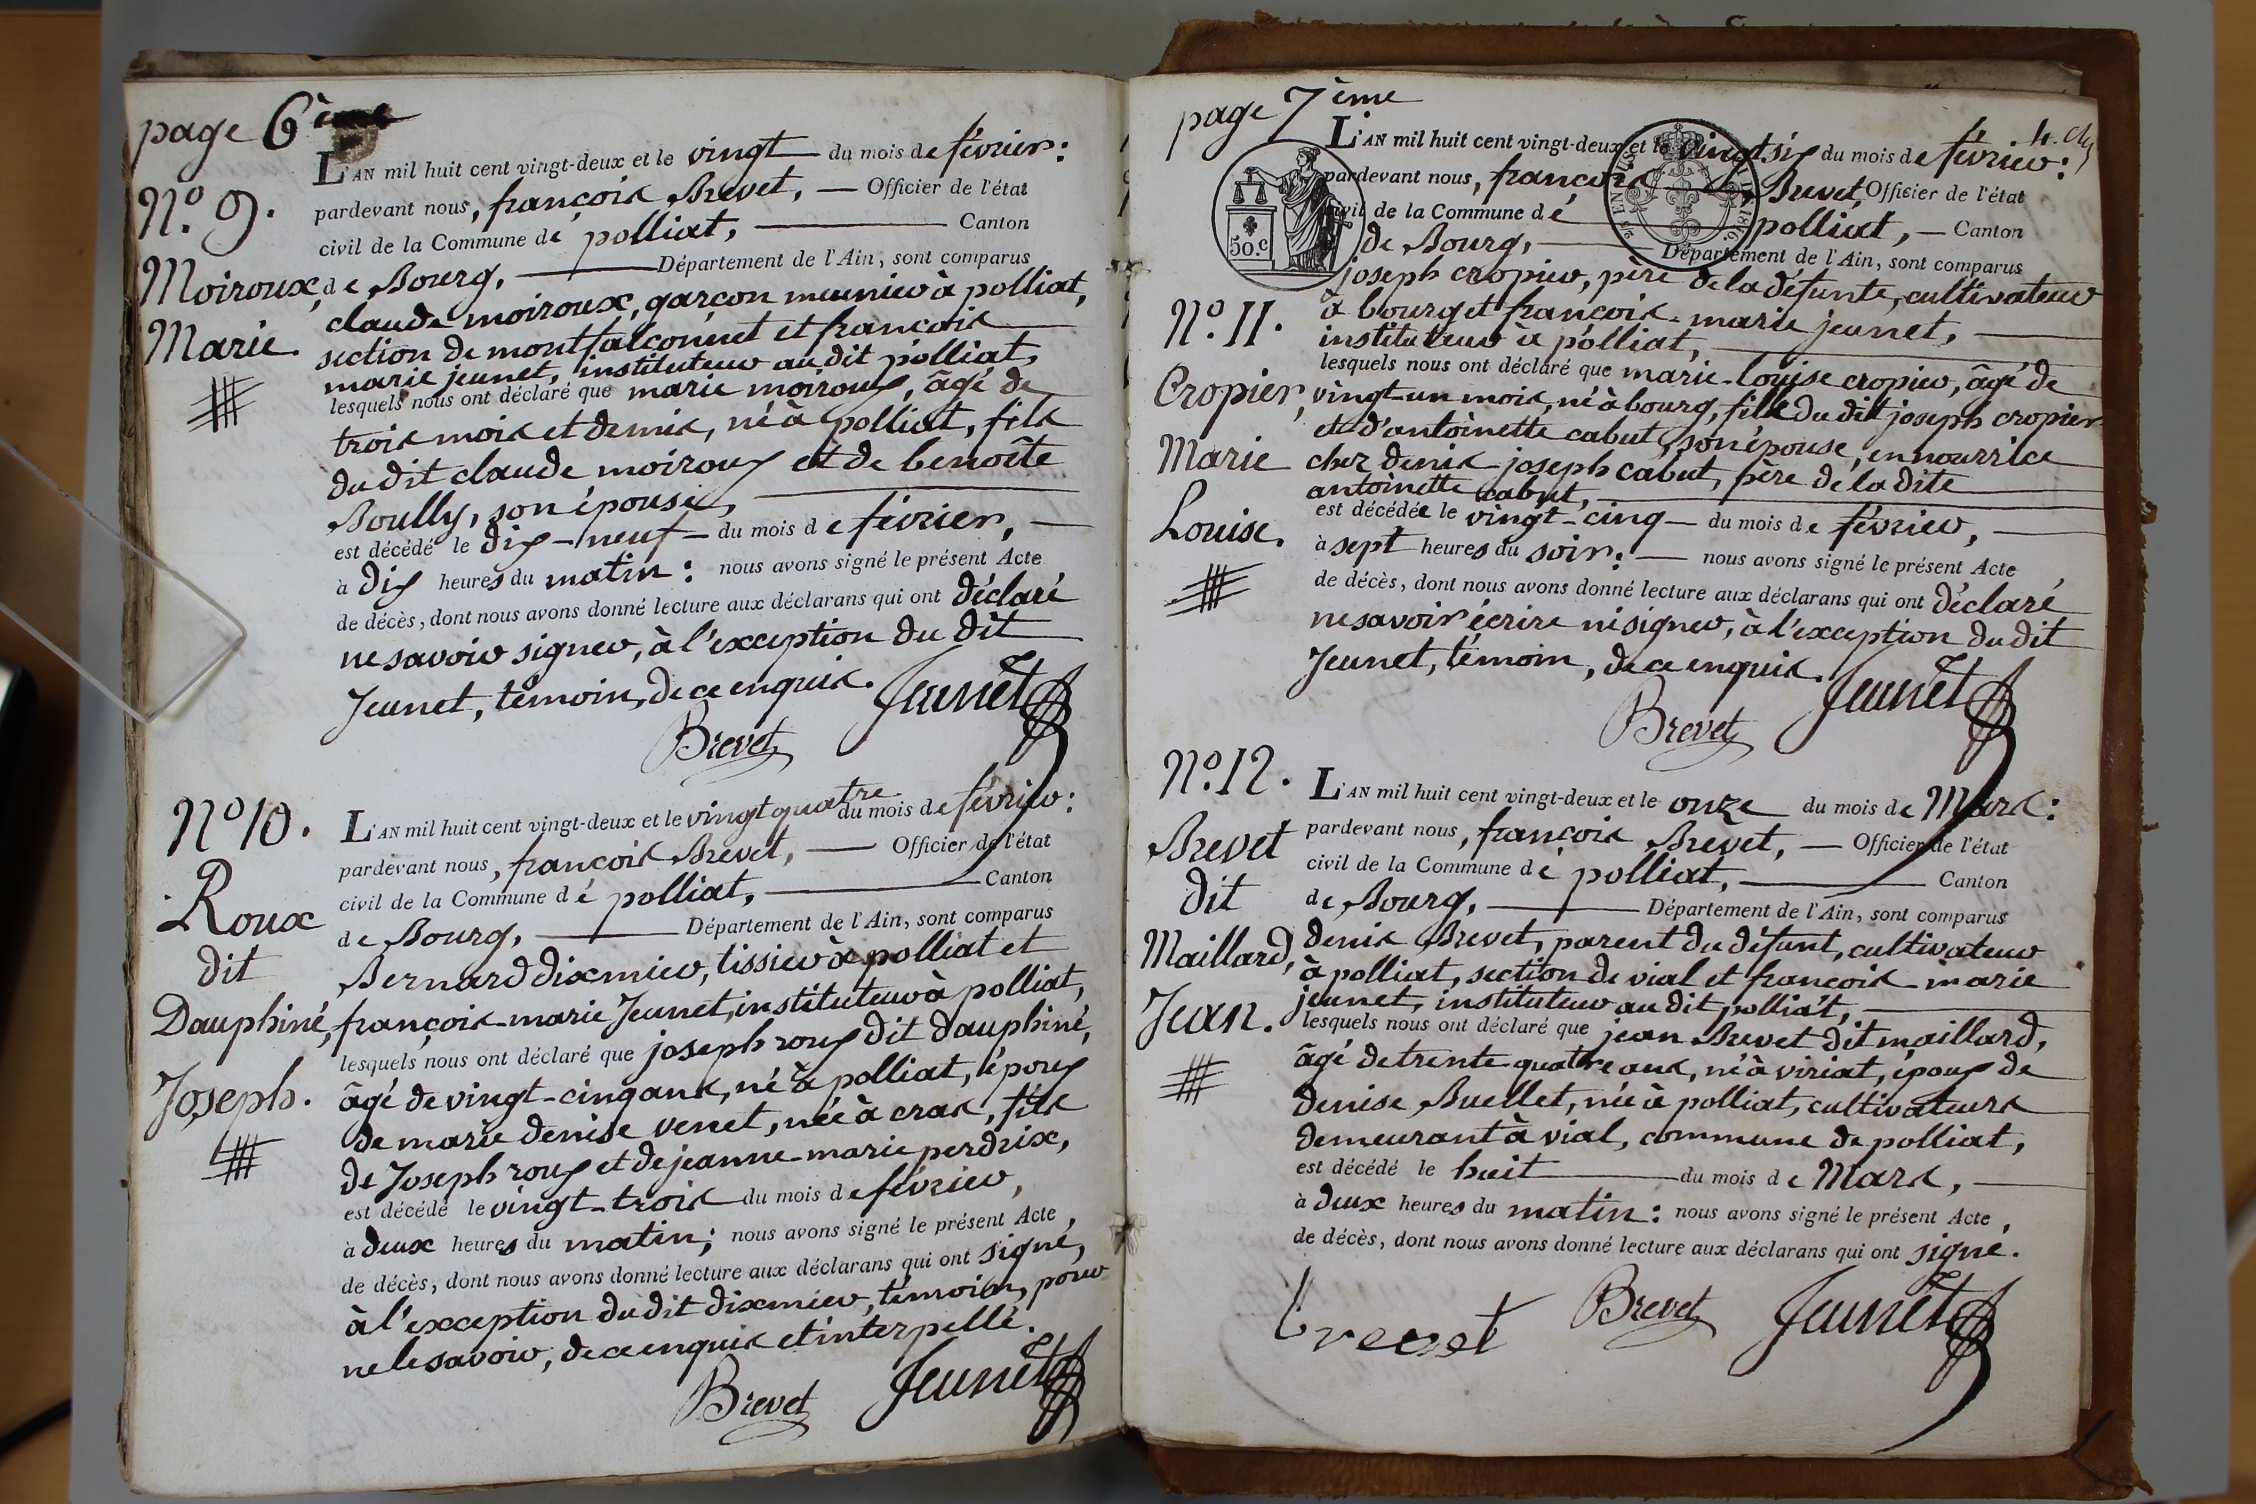 page 6ème
N.º 9.
Moiroux,
Marie.
L'AN mil huit cent vingt-deux et le vingt du mois de février:
pardevant nous, françois Brevet, — Officier de l'état
civil de la Commune dé polliat, — Canton
de Bourg, — Département de l'Ain, sont comparus
claude moiroux, garçon meunier à polliat,
section de montfalconnet et françois
marie jeunet, instituteur au dit polliat,
lesquels nous ont déclaré que marie moiroux, âgé de
trois mois et demis, né à polliat, fils
du dit claude moiroux et de benoîte
Boully, son épouse,
est décédé le dix-neuf du mois de février,
à dix heures du matin: nous avons signé le présent Acte
de décès, dont nous avons donné lecture aux déclarans qui ont déclaré
ne savoir signer, à l'exception du dit
Jeunet, témoin, de ce enquis.
Jeunet
Brevet
Nº 10.
Roux
dit
Dauphiné,
Joseph.
L'AN mil huit cent vingt-deux et le vingt quatre du mois de février:
pardevant nous, françois Brevet, — Officier de l'état
civil de la Commune dé polliat, — Canton
de Bourg, — Département de l'Ain, sont comparus
Bernard dixmier, tissier à polliat et
françois-marie Jeunet, instituteur à polliat,
lesquels nous ont déclaré que joseph roux dit dauphiné,
âgé de vingt-cinq ans, né à polliat, époux
de marie denise venet, née à cras, fils
de Joseph roux et de jeanne-marie perdrix,
est décédé le vingt-trois du mois de février,
à deux heures du matin; nous avons signé le présent Acte
de décès, dont nous avons donné lecture aux déclarans qui ont signé,
à l'exception du dit dixmier, témoin, pour
ne le savoir, de ce enquis et interpellé.
Brevet Jeunet
page 7ème
4.
50.c
1816
N.º 11.
Cropier,
Marie
Louise.
L'AN mil huit cent vingt-deux et le vingt six du mois de février:
pardevant nous, françois Brevet, Officier de l'état
civil de la Commune dé polliat, — Canton
de Bourg, — Département de l'Ain, sont comparus
joseph cropier, père de la défunte, cultivateur
à bourg et françois-marie jeunet,
instituteur à polliat,
lesquels nous ont déclaré que marie-louise cropier, âgé de
vingt-un mois, né à bourg, fille du dit joseph cropier
et d'antoinette cabut, son épouse, en nourrice
chez denis-joseph cabut, père de la dite
antoinette cabut,
est décédée le vingt-cinq du mois de février,
à sept heures du soir: — nous avons signé le présent Acte
de décès, dont nous avons donné lecture aux déclarans qui ont déclaré
ne savoir écrire ni signer, à l'exception du dit
Jeunet, témoin, de ce enquis.
Jeunet
Brevet
N.º 12.
Brevet
dit
Maillard,
Jean.
L'AN mil huit cent vingt-deux et le onze du mois de Mars:
pardevant nous, françois Brevet, — Officier de l'état
civil de la Commune dé polliat, — Canton
de Bourg, — Département de l'Ain, sont comparus
denis Brevet, parent du défunt, cultivateur
à polliat, section de vial et françois-marie
jeunet, instituteur au dit polliat,
lesquels nous ont déclaré que jean Brevet dit maillard,
âgé de trente quatre ans, né à viriat, époux de
denise Buellet, née à polliat, cultivateurs
demeurant à vial, commune de polliat,
est décédé le huit du mois de Mars,
à deux heures du matin: nous avons signé le présent Acte,
de décès, dont nous avons donné lecture aux déclarans qui ont signé.
brevet Brevet Jeunet